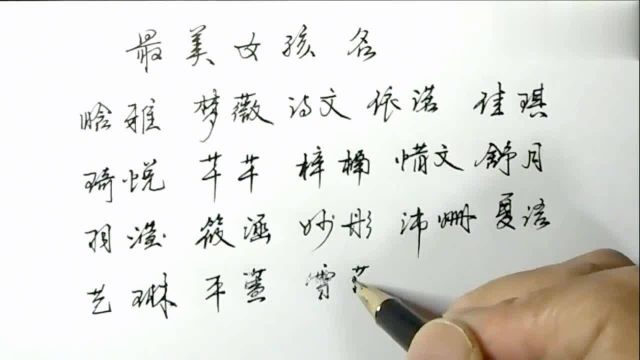 最美女孩名
晗雅 梦薇 诗文 依诺 佳琪
琦悦 芊芊 梓楠 惜文 舒月
羽滢 筱涵 妙彤 沛珊 夏语
艺琳 平萱 雪